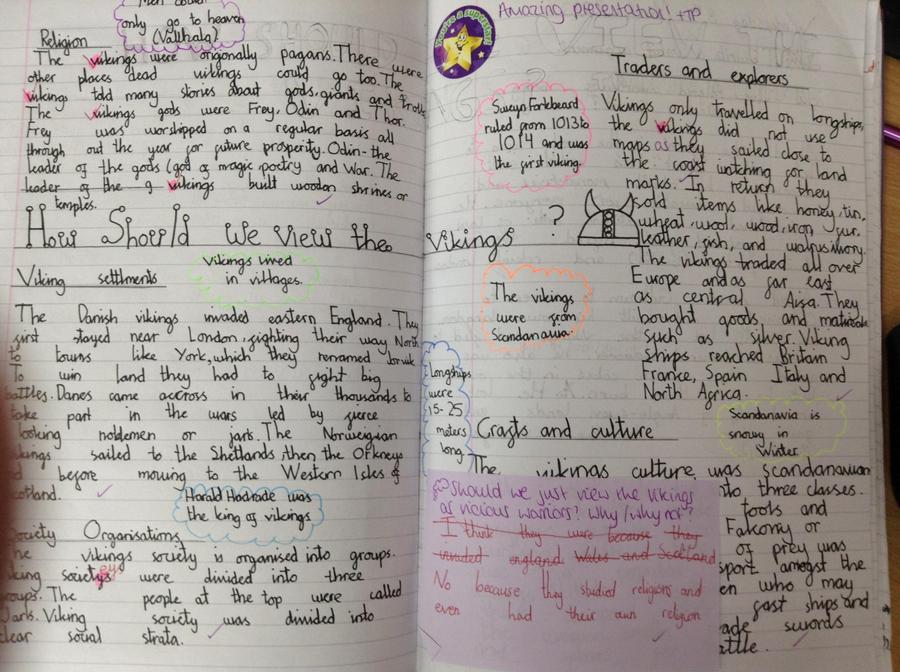 Men could
only go to heaven
(Vallhala)
Religion
The vikings were origonally pagans. There were
other places dead vikings could go too. The
vikings told many stories about gods, giants and trolls
The vikings gods were Frey, Odin and Thor.
Frey was worshipped on a regular basis all
through out the year for future prosperity. Odin - the
leader of the gods (god of magic, poetry and War. The
leader of the g vikings built wooden shrines or
temples.
How Should we view the Vikings ?
Viking settlments
Vikings lived
in villages.
The Danish vikings invaded eastern England. They
first stayed near London, fighting their way North
to towns like York, which they renamed Jorvik
To win land they had to fight big
battles. Danes came accross in their thousands to
take part in the wars led by fierce
looking noblemen or jarls. The Norweigian
vikings sailed to the Shetlands, then the Orkneys
d before moving to the Western Isles of
scotland.
Harald Hadrade was
the king of vikings
Society Organisations
The vikings society is organised into groups.
viking societys ey were divided into three
groups. The people at the top were called
Jarls. Viking society was divided into
clear soual strata.
You're a superstar!
Amazing presentation! +TP
Traders and explorers
Sweyn Forkbeard
ruled from 1013 to
1014 and was
the first viking.
Vikings only travelled on longships,
the vikings did not use
maps as they sailed close to
the coast watching for land
marks. In return they
sold items like honey, tin,
wheat, wool, wood, iron, fur,
leather, fish, and walrus ivory.
The vikings traded all over
Europe and as far east
as central Aisa. They
bought goods and
such as silver. Viking
ships reached Britain
France, Spain Italy and
North Africa.
The vikings
were from
Scandanavia.
Longships
were
15-25
meters
long.
Scandanavia is
snowy in
Winter.
Crafts and culture
The vikings culture was scandanavian
into three classes.
tools and
Falkony or
of prey was
sport amongst the
en who may
fast ships and
ade swords
attle.
Should we just view the vikings
as vicious warriors? Why/why not?
I think they were because they
invaded england Wales and Scotland
No because they studied religions and
even had their own religion